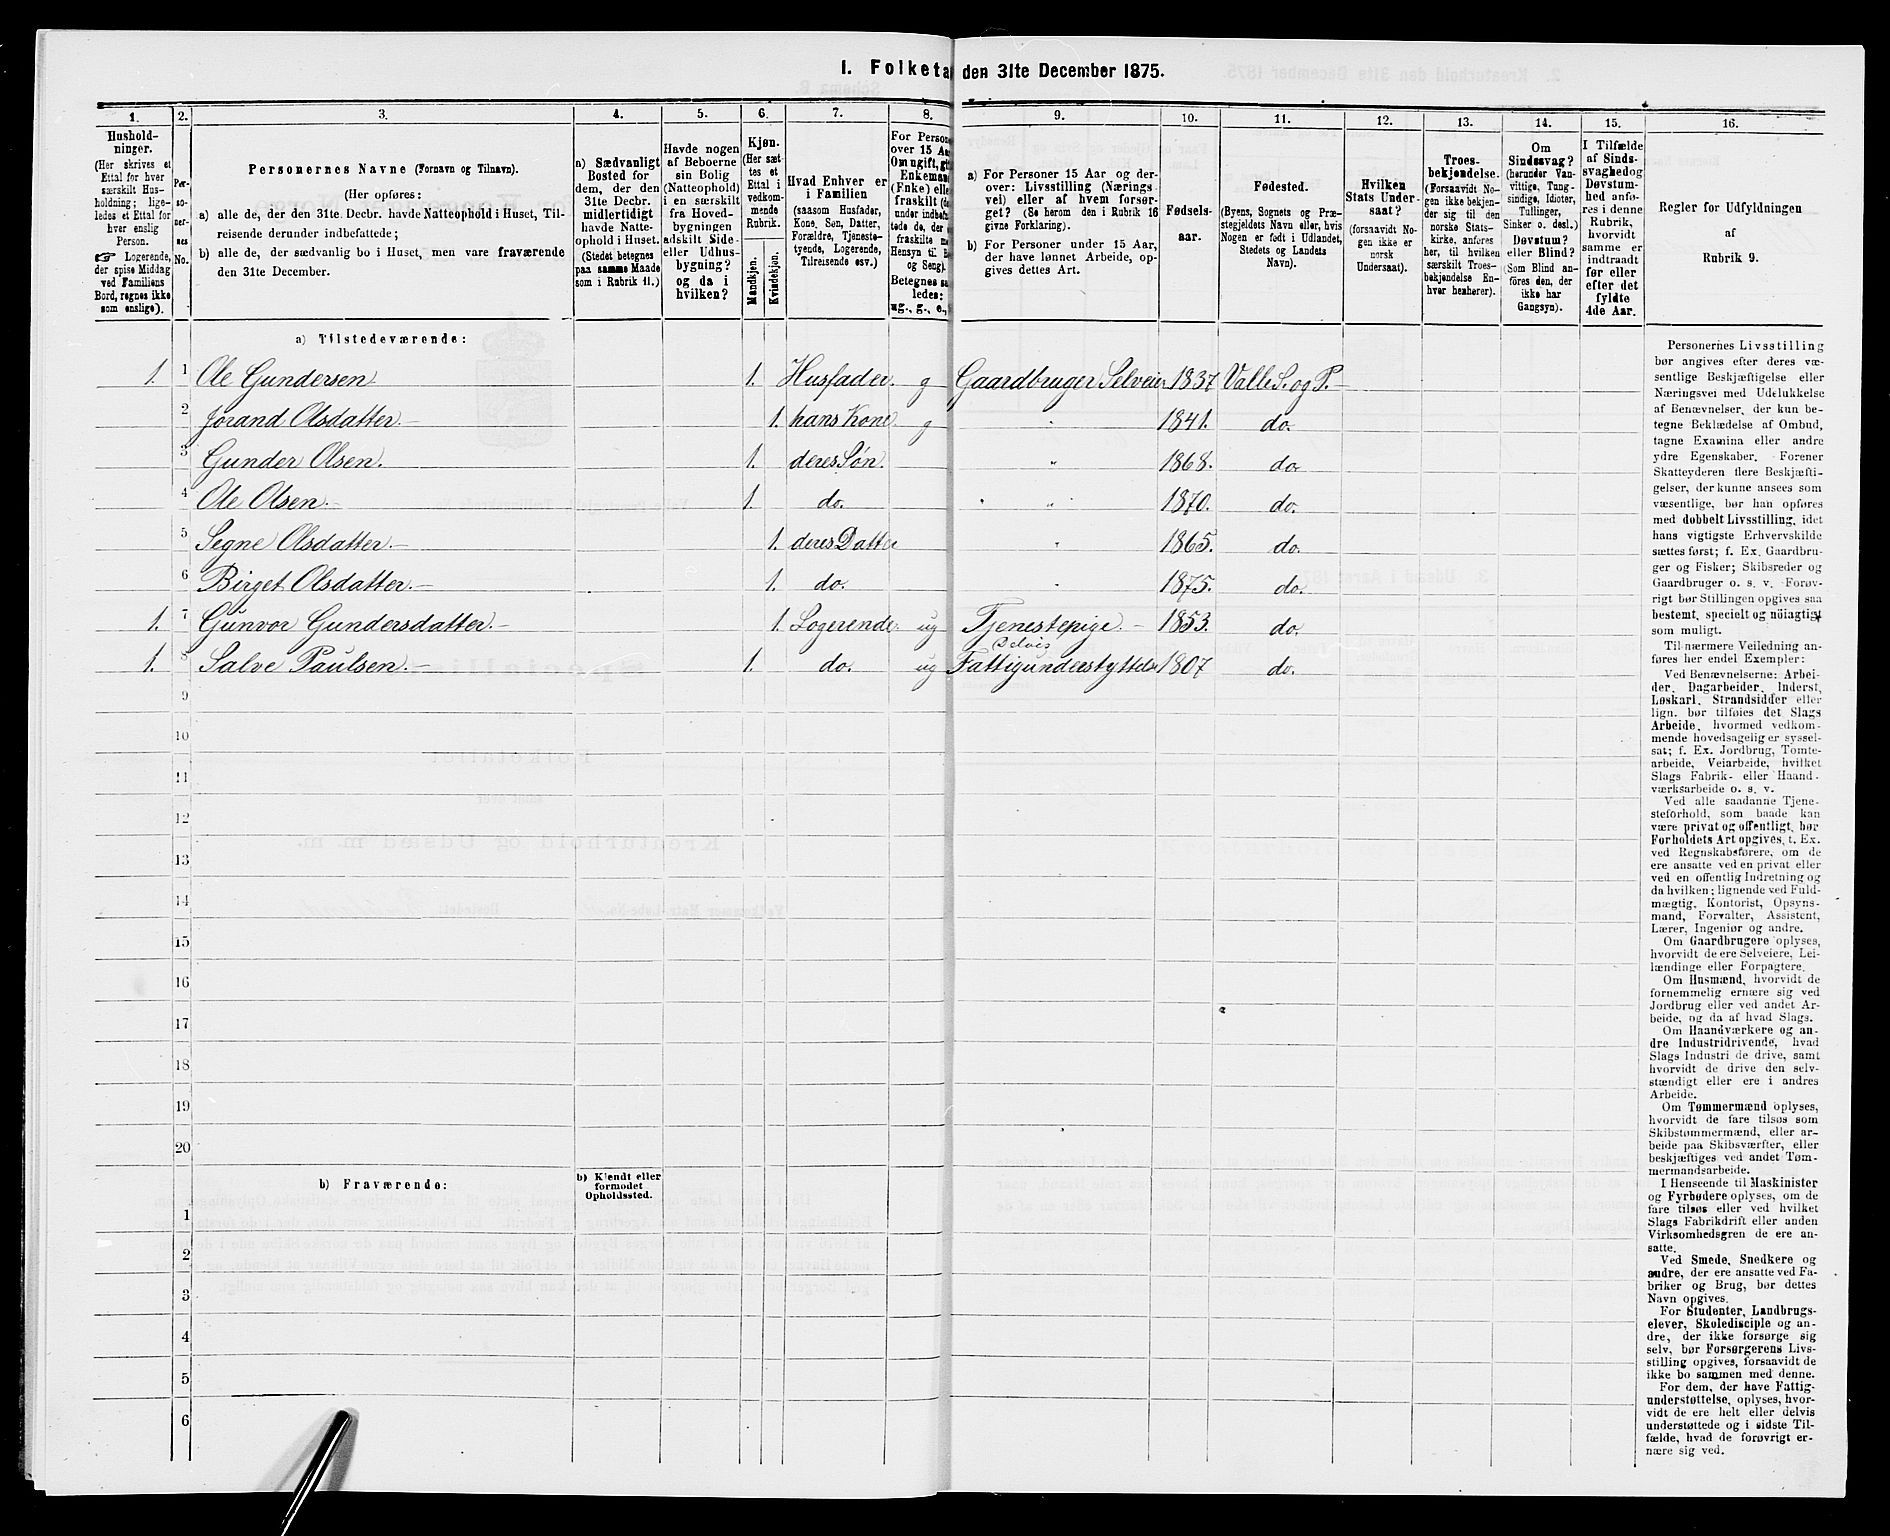 I. Folketa den 31te December 1875.
1. 2. 3. 4. 5. 6. 7. 8. 9. 10. 11. 12. 13. 14. 15. 16.
Hushold-
ninger.
(Her skrives et
Ettal for hver
særskilt Hus-
holdning; lige-
ledes et Ettal for
hver enslig
Person.
☞ Logerende,
der spise Middag
ved Familiens
Bord, regnes ikke
som enslige).
Per-
so-
ner-
nes
No.
Personernes Navne (Fornavn og Tilnavn).
(Her opføres:
a) alle de, der den 31te Decbr. havde Natteophold i Huset, Til-
reisende derunder indbefattede;
b) alle de, der sædvanlig bo i Huset, men vare fraværende
den 31te December.
a) Sædvanligt
Bosted for
dem, der den
31te Decbr.
midlertidigt
havde Natte-
ophold i Huset.
(Stedet betegnes
paa samme Maade
som i Rubrik 11.)
Havde nogen
af Beboerne
sin Bolig
(Natteophold)
i en særskilt
fra Hoved-
bygningen
adskilt Side-
eller Udhus-
bygning?
og da i
hvilken?
Kjøn.
(Her sæt
tes et
Ettal i
vedkom-
mende
Rubrik.
Mandkjøn.
Kvindekjøn.
Hvad Enhver er
i Familien
(saasom Husfader,
Kone, Søn, Datter,
Forældre, Tjeneste-
tyende, Logerende,
Tilreisende osv.)
For Persone
over 15 Aa
Om ugift, gi
Enkemæ
(Fnke) elle
fraskilt (d
under indbef
tede de, der
fraskilte m
Hensyn til B
og Seng).
Betegnes sa
ledes:
ug., g., e.,
a) For Personer 15 Aar og der-
over: Livsstilling (Nærings
vei) eller af hvem forsør-
get? (Se herom den i Rubrik 16
givne Forklaring).
b) For Personer under 15 Aar,
der have lønnet Arbeide, op-
gives dettes Art.
Fødsels-
aar.
Fødested.
(Byens, Sognets og Præ-
stegjeldets Navn eller, hvis
Nogen er født i Udlandet,
Stedets og Landets
Navn).
Hvilken
Stats Under-
saat?
(forsaavidt No-
gen ikke er
norsk
Undersaat).
Troes-
bekjendelse.
(Forsaavidt No-
gen ikke bekjen-
der sig til den
norske Stats-
kirke, anføres
her, til hvilken
særskilt Troes-
bekjendelse En-
hver henhører).
Om
Sindssvag?
(herunder Van-
vittige, Tung-
sindige, Idioter,
Tullinger,
Sinker o. desl.)
Døvstum?
eller Blind?
(Som Blind an-
føres den, der
ikke har
Gangsyn).
I Tilfælde
af Sinds-
svaghed og
Døvstum-
hed anfø-
res i denne
Rubrik,
hvorvidt
samme er
indtraadt
før eller
efter det
fyldte
4de Aar.
Regler for Udfyldningen
af
Rubrik 9.
a) Tilstedeværende:
1. 1 Ole Gundersen 1. Husfader. g Gaardbruger Selveier 1837 Valle S. og P.-
2 Jorand Olsdatter.- 1. hans Kone g " 1841. do.
3 Gunder Olsen. 1. deres Søn. " 1868. do.
4 Ole Olsen.- 1. do. " 1870. do.
5 Segne Olsdatter.- 1. deres Datte " 1865. do.
6 Birget Olsdatter.- 1. do. " 1875. do.
1. 7 Gunvor Gundersdatter.- 1. Logerende. ug Tjenestepige.- 1853. do.
Delvis
1. 8 Salve Paulsen.- 1. do. ug Fattigunderstyttelse 1807 do.
9
10
11
12
13
14
15
16
17
18
19
20
b) Fraværende:
b) Kjendt eller
formodet
Opholdssted.
1
2
3
4
5
6
Personernes Livsstilling
bør angives efter deres væ-
sentlige Beskjæftigelse eller
Næringsvei med Udelukkelse
af Benævnelser, der kun be-
tegne Beklædelse af Ombud,
tagne Examina eller andre
ydre Egenskaber. Forener
Skatteyderen flere Beskjæfti-
gelser, der kunne ansees som
væsentlige, bør han opføres
med dobbelt Livsstilling, idet
hans vigtigste Erhvervskilde
sættes først; f. Ex. Gaardbru-
ger og Fisker; Skibsreder og
Gaardbruger o. s. v. Forøv-
rigt bør Stillingen opgives saa
bestemt, specielt og nöiagtigt
som muligt.
Til nærmere Veiledning an-
føres her endel Exempler:
Ved Benævnelserne: Arbei-
der, Dagarbeider, Inderst,
Løskarl, Strandsidder eller
lign. bør tilføies det Slags
Arbeide, hvormed vedkom-
mende hovedsagelig er syssel-
sat; f. Ex. Jordbrug, Tomte-
arbeide, Veiarbeide, hvilket
Slags Fabrik- eller Haand-
værksarbeide o. s. v.
Ved alle saadanne Tjene-
steforhold, som baade kan
være privat og offentligt, bør
Forholdets Art opgives, t. Ex.
ved Regnskabsførere, om de
ere ansatte ved en privat eller
ved en offentlig Indretning og
da hvilken; lignende ved Fuld-
mægtig, Kontorist, Opsyns-
mand, Forvalter, Assistent,
Lærer, Ingeniør og andre.
Om Gaardbrugere oplyses,
hvorvidt de ere Selveiere, Lei-
lændinge eller Forpagtere.
Om Husmænd, hvorvidt de
fornemmelig ernære sig ved
Jordbrug eller ved andet Ar-
beide, og da af hvad Slags.
Om Haandværkere og an-
dre Industridrivende, hvad
Slags Industri de drive, samt
hvorvidt de drive den selv-
stændigt eller ere i andres
Arbeide.
Om Tømmermænd oplyses,
hvorvidt de fare tilsøs som
Skibstømmermænd, eller ar-
beide paa Skibsværfter, eller
beskjæftiges ved andet Tøm-
mermandsarbeide.
I Henseende til Maskinister
og Fyrbødere oplyses, om de
fare tilsøs eller ved hvilket
Slags Fabrikdrift eller anden
Virksomhedsgren de ere an-
satte.
Ved Smede, Snedkere og
andre, der ere ansatte ved Fa-
briker og Brug, bør dettes
Navn opgives.
For Studenter, Landbrugs-
elever, Skoledisciple og an-
dre, der ikke forsørge sig
selv, bør Forsørgerens Livs-
stilling opgives, forsaavidt de
ikke bo sammen med denne.
For dem, der have Fattig-
understøttelse, oplyses, hvor-
vidt de ere helt eller delvis
understøttede og i sidste Til-
fælde, hvad de forøvrigt er-
nære sig ved.